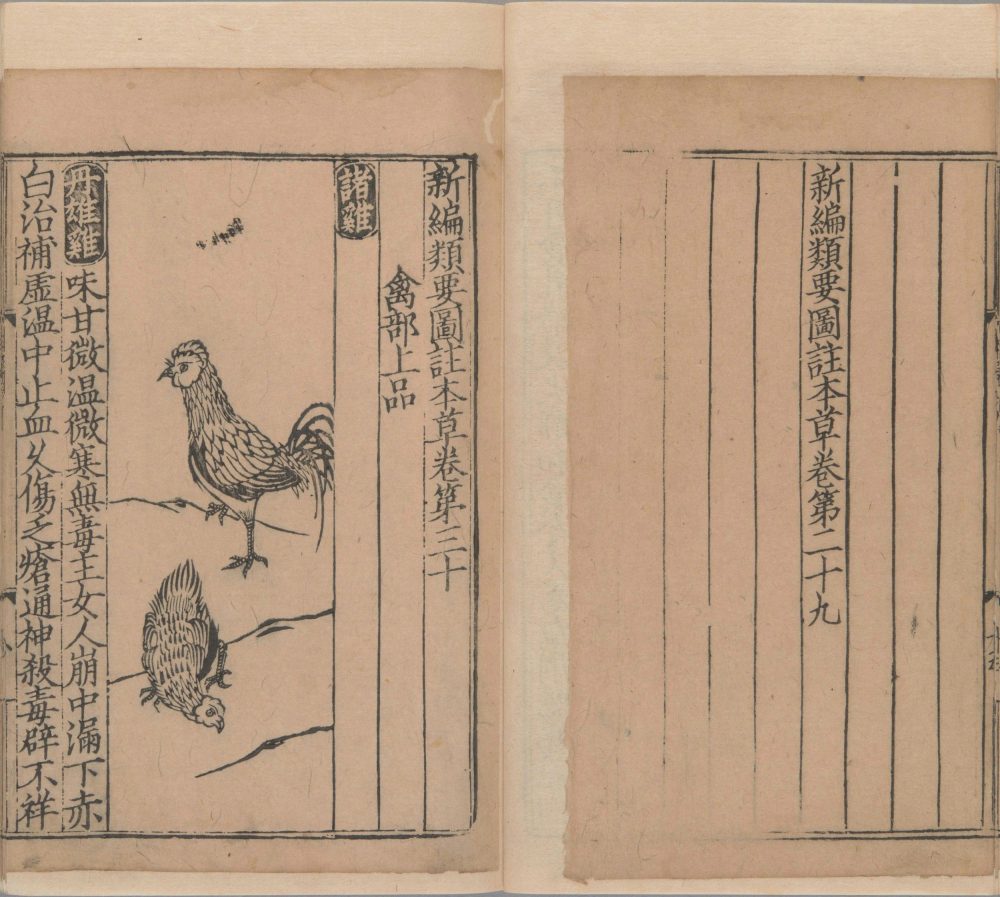 新編類要圖註本草卷第二十九
新編類要圖註本草卷第三十
禽部上品
諸雞
丹雄雞 味甘微温微寒無毒主女人崩中漏下赤
白治補虛温中止血久傷乏瘡通神殺毒辟不祥